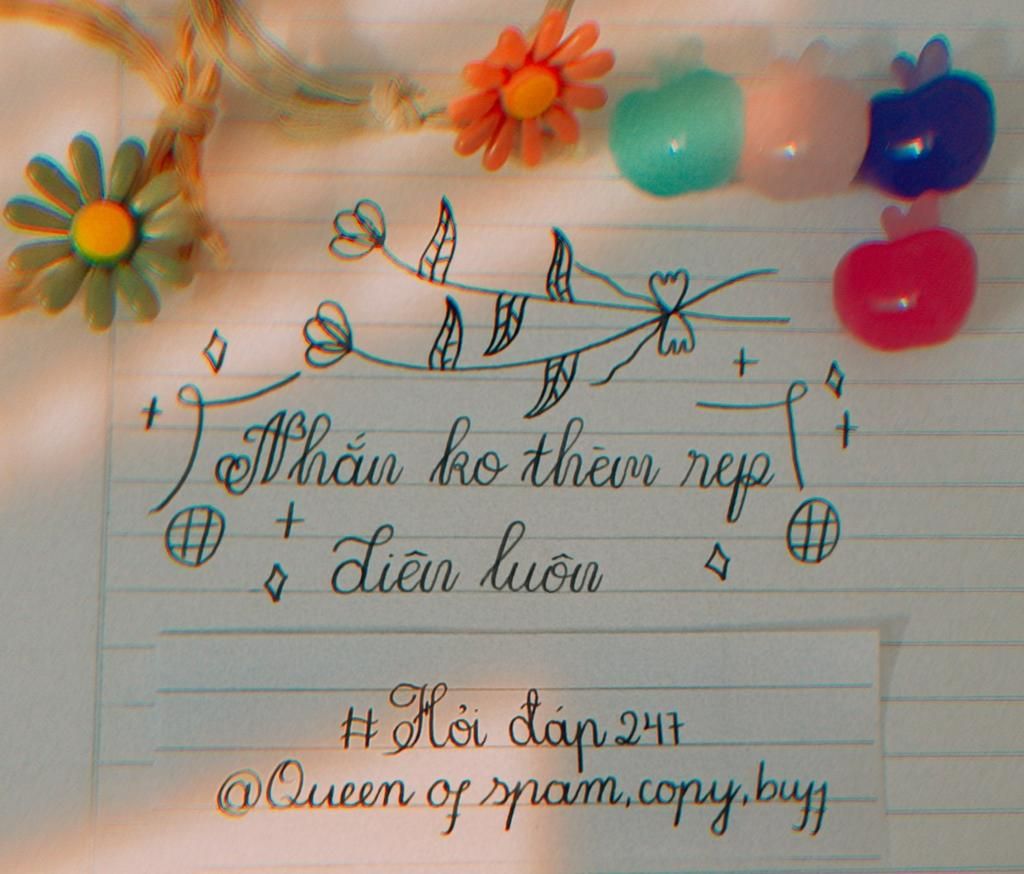 Nhắn ko thèm rep
diên luôn
#Hỏi đáp 247
@Queen of spam,copy,buff